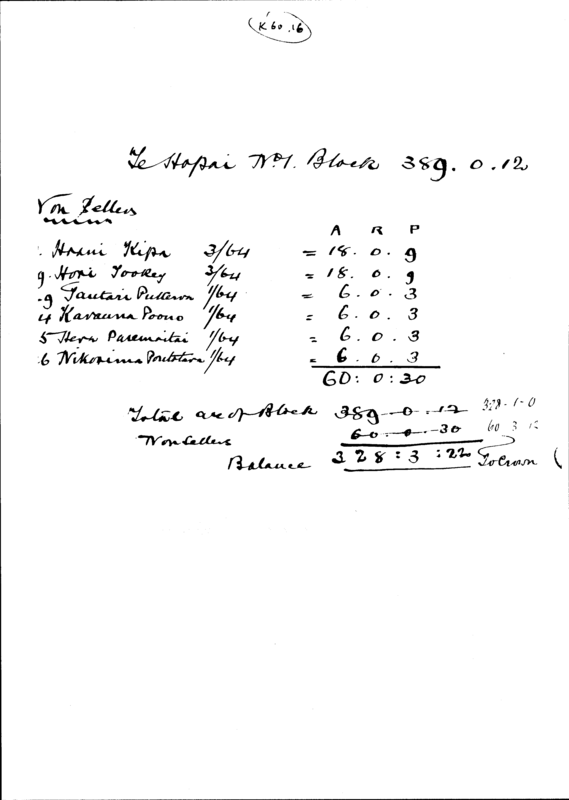 K 60.16
Te Hapai No 1. Block 389. 0. 12
Non Sellers
A R P
Haani Kipa 3/64 = 18. 0. 9
Hori Tookey 3/64 = 18. 0. 9
1/64 = 6. 0. 3
4 Karauna Poono 1/64 = 6. 0. 3
5 Hera Paremaitai 1/64 = 6. 0. 3
6 Nikorima 1/64 = 6. 0. 3
60: 0: 30
Total are of Block 389 0. 12 328-1-0
Non Sellers 60. 0. 30 60 3 12
Balance 328: 3: 22 To Crown (